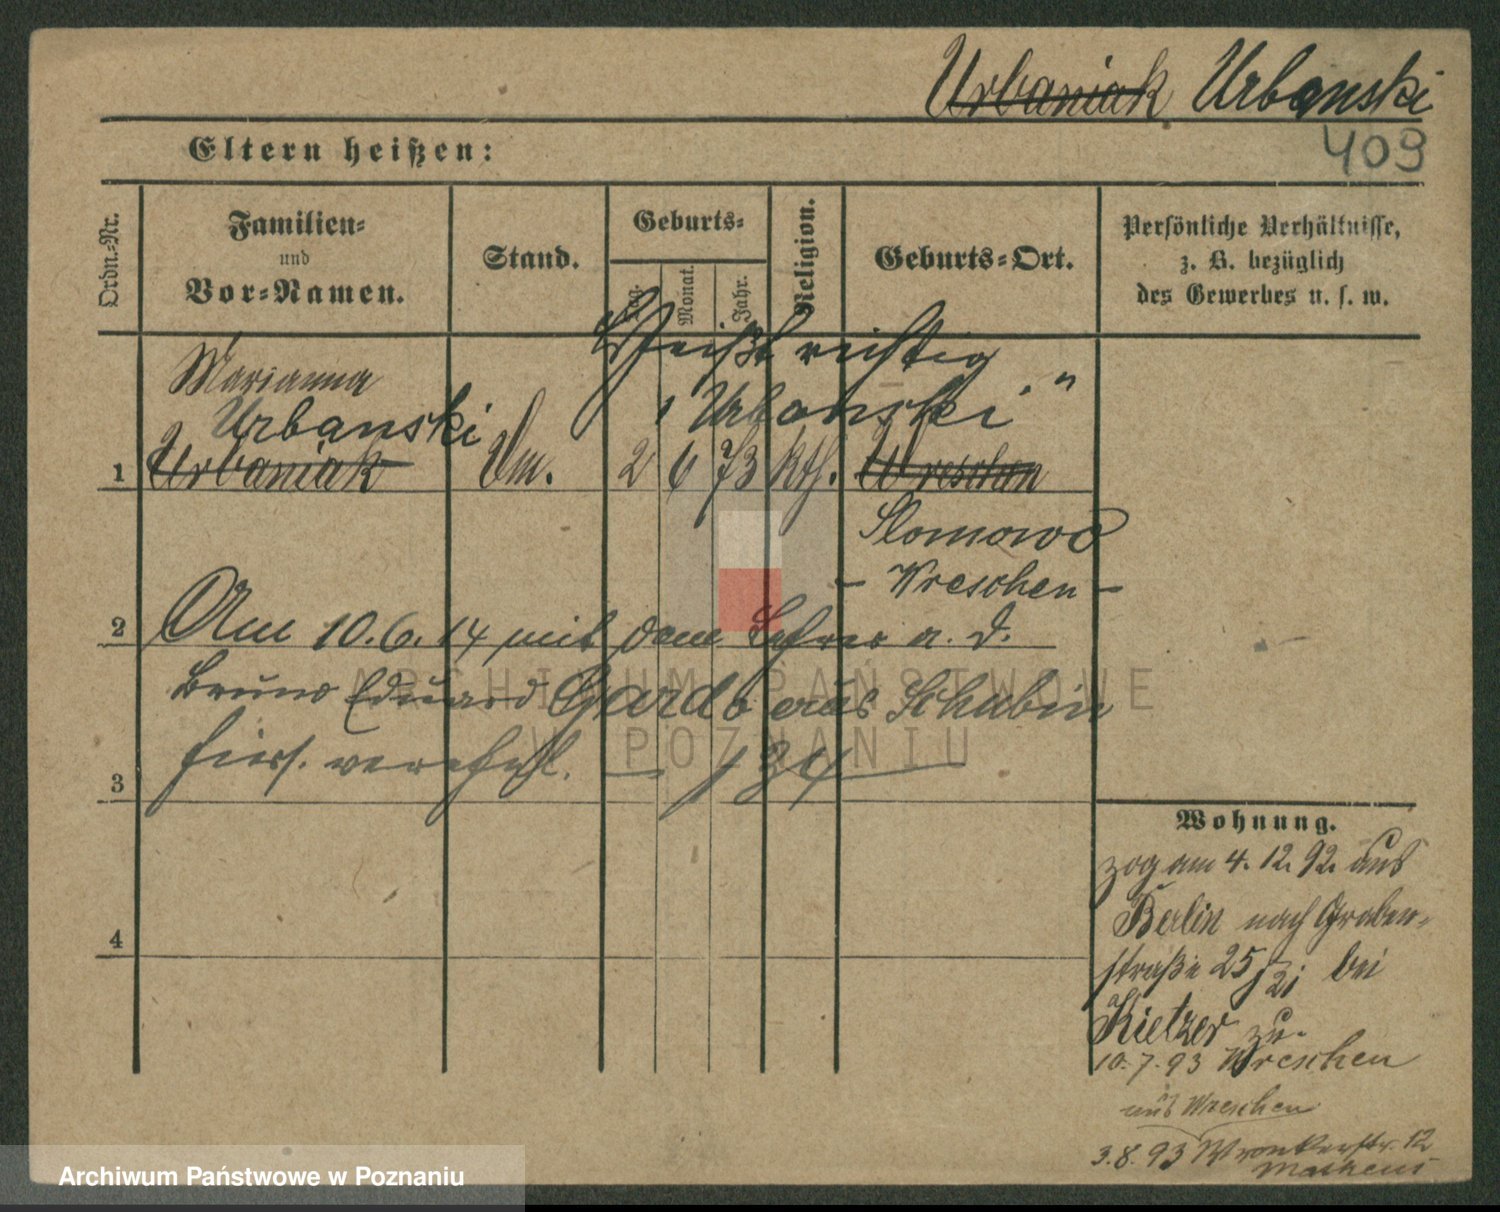 Urbaniak Urbanski
409
Eltern heißen:
Ordn.-Nr.
Familien-
und
Vor-Namen.
Stand.
Geburts-
Tag.
Monat.
Jahr.
Religion.
Geburts-Ort.
Persönliche Verhältnisse,
z. B. bezüglich
des Gewerbes u. s. w.
Heißt richtig
"Urbanski"
Marianna
Urbanski
1 Urbaniak Um. 2 6 73 kth. Wreschen
Slomowo
- Wreschen -
2 Am 10.6.14 mit dem Lehrer a. D.
Bruno Eduard Gardo aus Schubin
3 hiers. verehel.
4
Wohnung.
zog am 4. 12. 92. aus
Berlin nach Graben-
straße 25 bei
Kietzer zu.
10.7.93 Wreschen
aus Wreschen
3.8.93 Wronkerstr. 12
ARCHIWUM PAŃSTWOWE
W POZNANIU
Archiwum Państwowe w Poznaniu